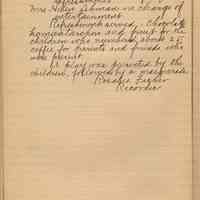 Mrs. Helen Lehman in charge of
entertainment.
Refreshments served, Chocolate
and fruit for the
children who numbered about 25
coffee for parents and friends who
was present.
A play was presented by the
children, followed by a grab
Rosalie
Recorder